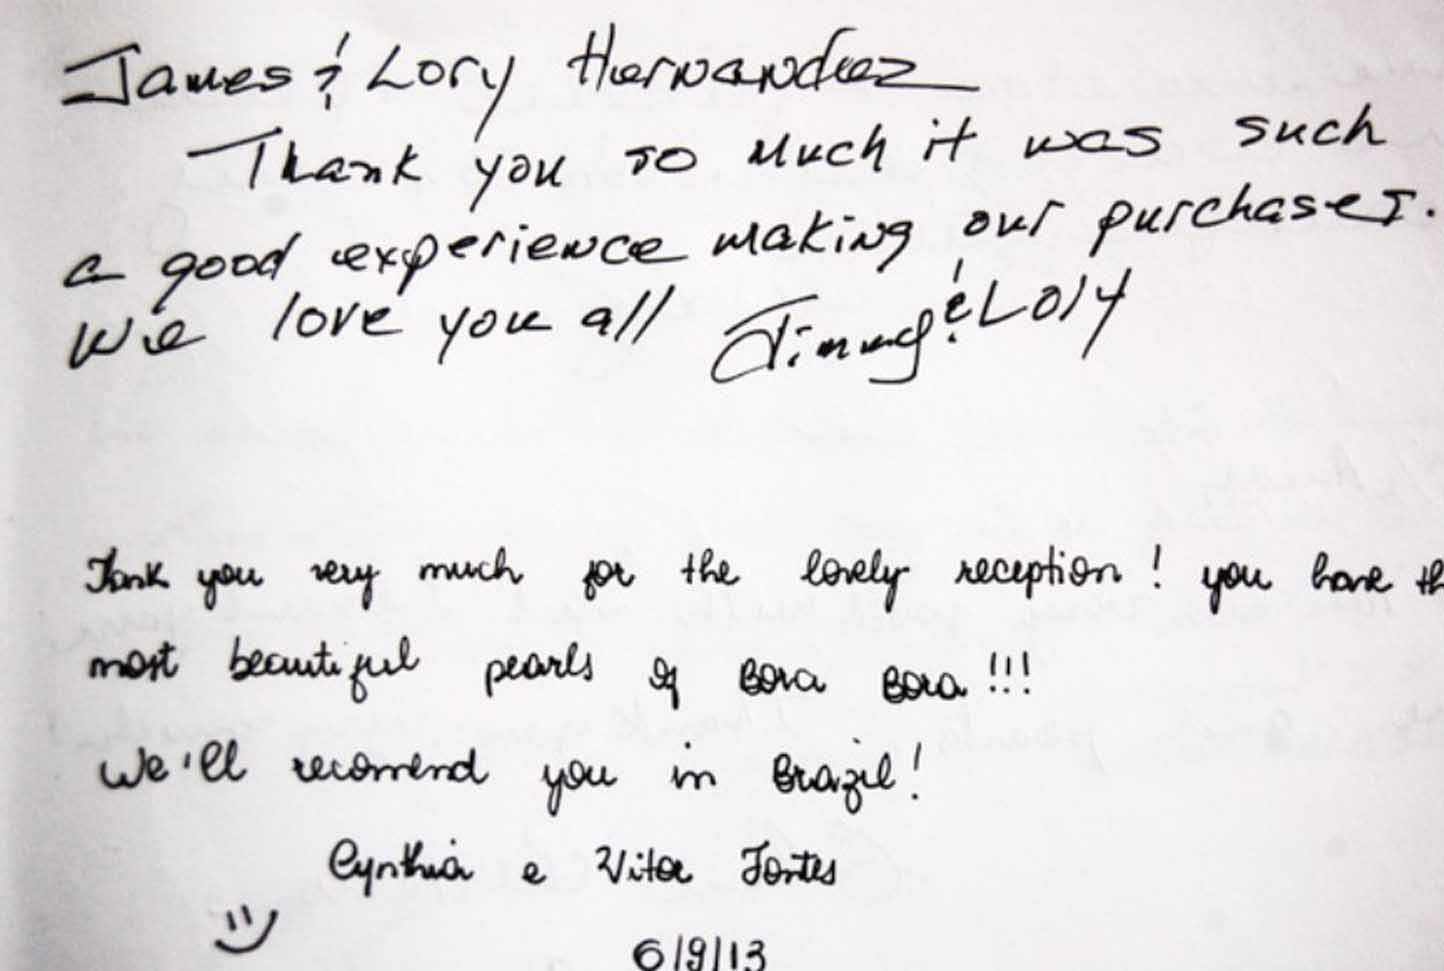 James & Lory Hernandez
Thank you so much it was such
a good experience making our purchases.
We love you all Jimmy & Lory
Tank you very much for the lovely reception! you have th
most beautiful pearls of Bora Bora!!!
We'll recomend you in Brazil!
Cynthia e Vitor Fontes
6/9/13